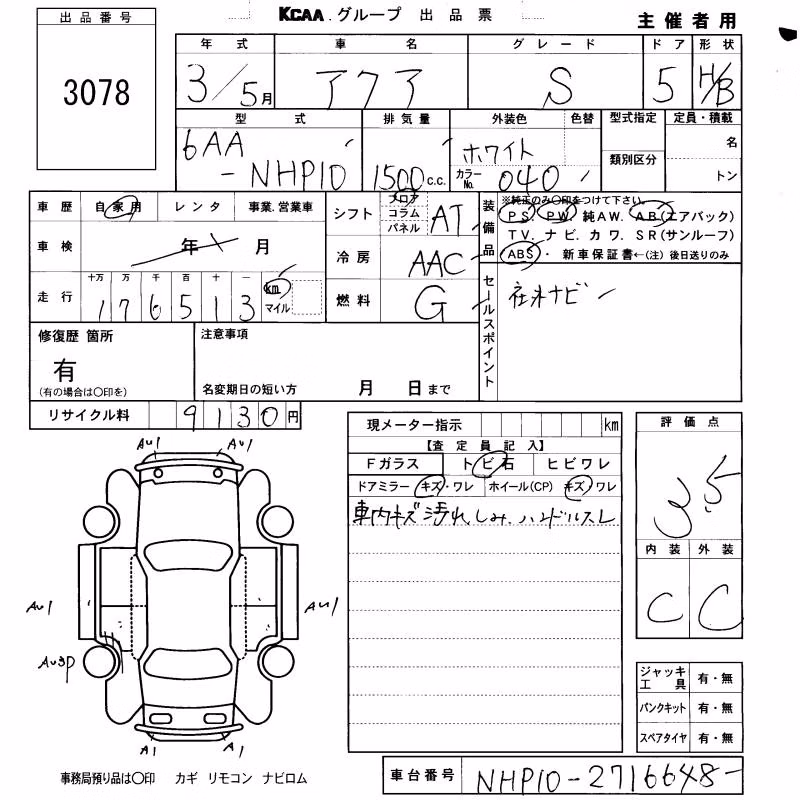 KCAA.グループ 出品票
主催者用
出品番号
3078
年式 車名 グレード ドア 形状
3/5月 アクア S 5 H/B
型式 排気量 外装色 色替 型式指定 定員・積載
6AA-NHP10 1500c.c. ホワイト 名
カラーNo. 040 類別区分 トン
車歴 自家用 レンタ 事業.営業車
シフト フロア コラム パネル AT
装備品 ※純正のみ〇印をつけて下さい。
PS. PW. 純AW. AB(エアバック)
TV. ナビ. カワ. SR(サンルーフ)
ABS・ 新車保証書←(注)後日送りのみ
車検 年 月
冷房 AAC
走行 十万 万 千 百 十 一 km マイル
176513
燃料 G
セールスポイント 社外ナビ
修復歴 箇所
有
(有の場合は〇印を)
注意事項
名変期日の短い方 月 日まで
リサイクル料 9130円
現メーター指示 km
【査定員記入】
Fガラス トビ石 ヒビワレ
ドアミラー キズ・ワレ ホイール(CP) キズ/ワレ
車内キズ汚れしみ.ハンドルスレ
評価点
3.5
内装 外装
C C
AU1 AU1
AU1 AU1
AU3P
A1 A1
ジャッキ工具 有・無
パンクキット 有・無
スペアタイヤ 有・無
事務局預り品は〇印 カギ リモコン ナビロム
車台番号 NHP10-2716648